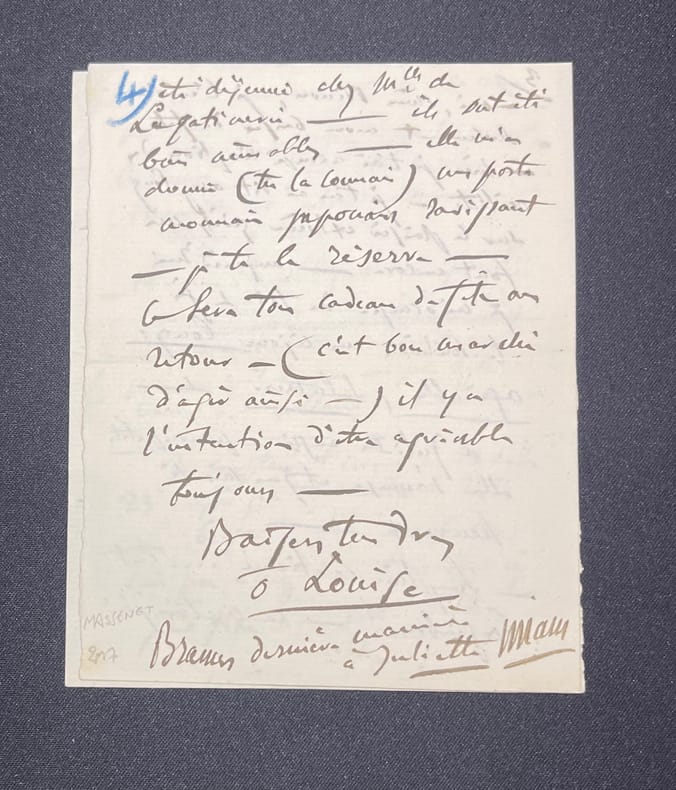 4) été déjeuné chez Mme de
La ——— ils ont été
bien aimables ——— elle m'a
donné (tu la connais) un porte
monnaie japonais ravissant
— je te le réserve —
ce sera ton cadeau de fête au
retour — (c'est bon marché
d'agir ainsi —) il y a
l'intention d'être agréable
toujours ———
Baisers tendres
ô Louise
dernière manière
à Juliette
MASSENET
2017